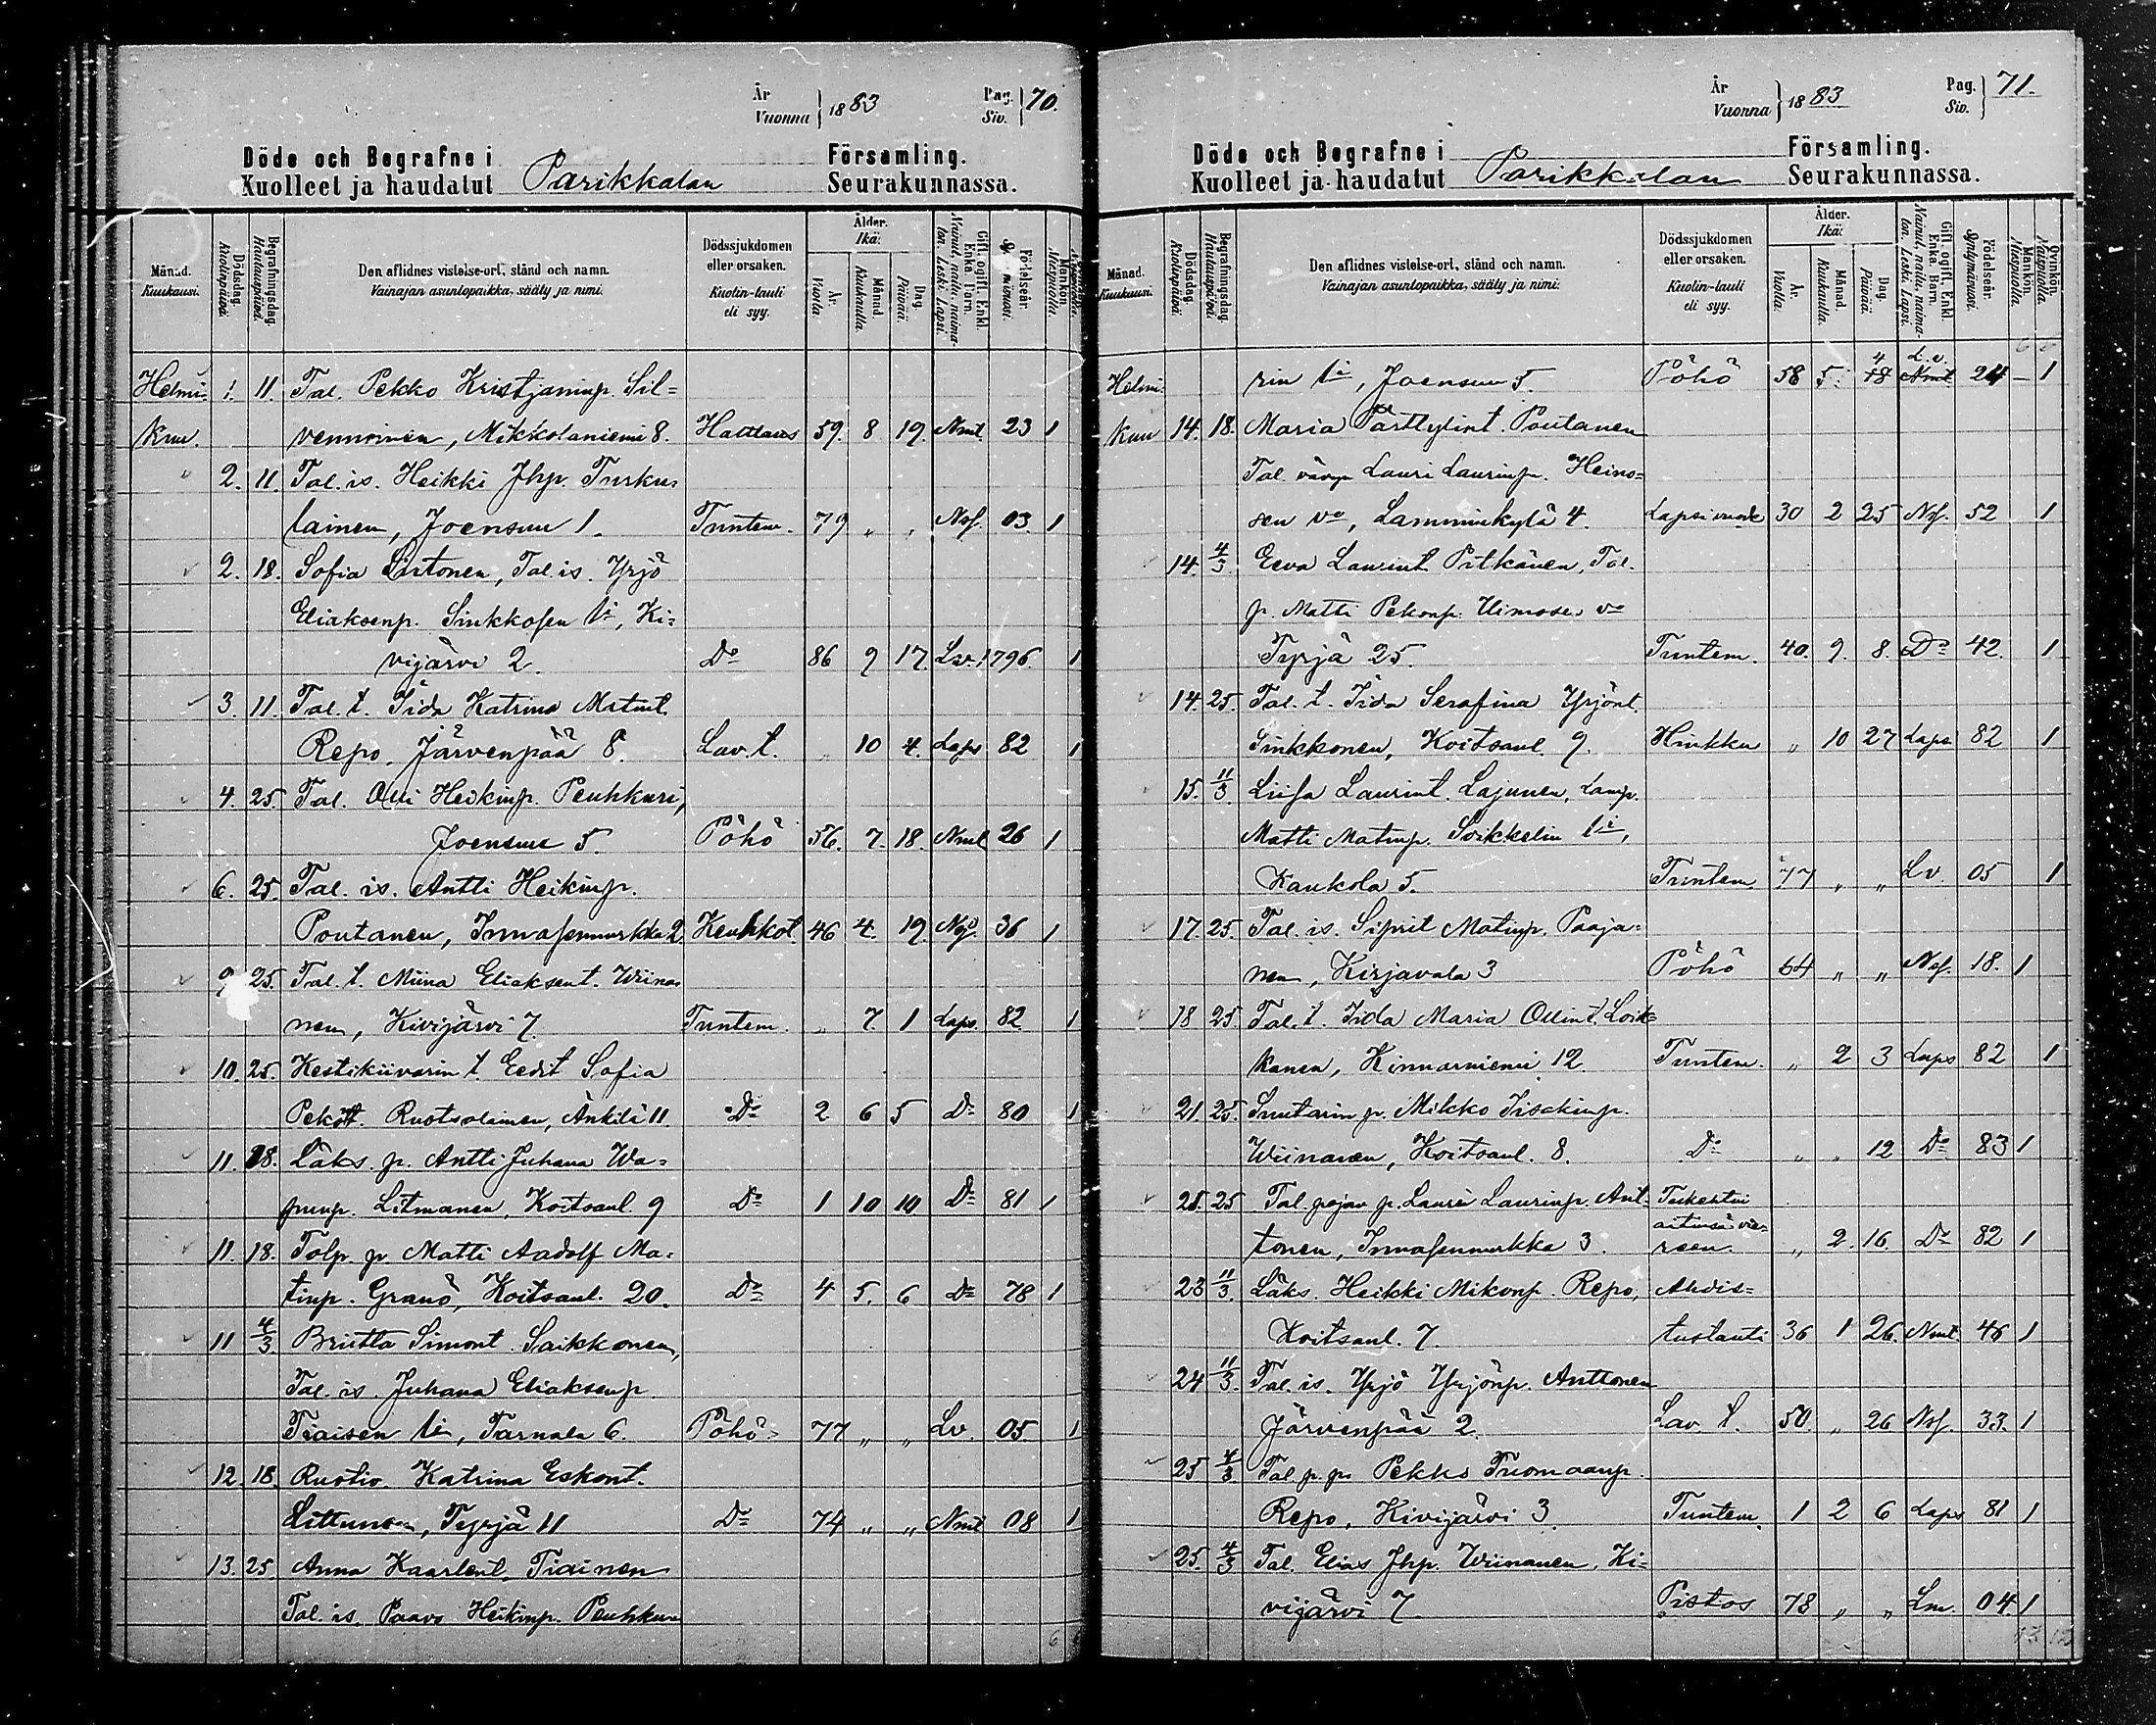 År
Vuonna } 1883
Pag.
Siv. } 70.
Döde och Begrafne i
Kuolleet ja haudatut Parikkalan
Församling.
Seurakunnassa.
Månad. Kuukausi.
Dödsdag. Kuolinpäivä.
Begrafningsdag. Hautauspäivä.
Den aflidnes vistelse-ort, stånd och namn.
Vainajan asuntopaikka, sääty ja nimi.
Dödssjukdomen eller orsaken.
Kuolin-tauti eli syy.
Ålder. Ikä:
År. Vuotta.
Månad. Kuukautta.
Dag. Päivää.
Gift, ogift, Enkl. Enka, Barn.
Nainut, naitu, naimaton. Leski. Lapsi.
Födelseår.
Mankön. Miespuolia.
Helmi- 1. 11. Tal. Pekko Kristjaninp. Sil=
kuu. vennoinen, Mikkolaniemi 8. Haltaus 59. 8 19. Nmt. 23 1
2. 11. Tal. is. Heikki Jhp. Turku=
lainen, Joensuu 1. Tuntem. 79 „ „ Nsf. 03. 1
2. 18. Sofia Tal. is. Yrjö
Eliaksenp. Sinkkosen li, Ki=
vijärvi 2. Do 86 9 17. Lsv. 1796. 1
3. 11. Tal. t. Iida Katrina Mrtint.
Repo, Järvenpää 8. Lav. t. „ 10 4. Laps 82 1
4. 25. Tal. Olli Heikinp. Peuhkuri,
Joensuu 5. Pöhö 56. 7. 18. Nmt 26 1
6. 25. Tal. is. Antti Heikinp.
Poutanen, Innasenmurkka 2 Keuhkot. 46 4. 19. Nsf. 36 1
9 25. Tal. t. Miina Eliaksent. Wiina=
nen, Kivijärvi 7. Tuntem. „ 7. 1 Laps. 82 1
10. 25. Kestikiivarin t. Eedit Sofia
Pekont. Ruotsalainen, Änkilä 11 Do 2 6 5 Do 80 1
11. 18. Läks. p. Antti Juhana Wa=
punp. Litmanen, Koitsanl. 9 Do 1 10 10 Do 81 1
11. 18. Tolp. p. Matti Aadolf Ma=
tinp. Granö, Koitsanl. 20. Do 4 5. 6 Do 78 1
11 4/3. Briitta Simont. Saikkonen,
Tal. is. Juhana Eliaksenp
Tiaisen li, Tarnala 6. Pöhö 77 „ „ Lv. 05. 1
12. 18. Ruotiv. Katrina Eskont.
Littunen, Tyrjä 11 Do 74 „ „ Nmt 08 1
13. 25 Anna Kaarlent. Tiainen
Tal. is. Paavo Heikinp. Peuhkun
6
År
Vuonna } 1883
Pag.
Siv. } 71.
Döde och Begrafne i
Kuolleet ja haudatut Parikkalan
Församling.
Seurakunnassa.
Månad. Kuukausi.
Dödsdag. Kuolinpäivä.
Begrafningsdag. Hautauspäivä.
Den aflidnes vistelse-ort, stånd och namn.
Vainajan asuntopaikka, sääty ja nimi.
Dödssjukdomen eller orsaken.
Kuolin-tauti eli syy.
Ålder. Ikä:
År. Vuotta.
Månad. Kuukautta.
Dag. Päivää.
Gift, ogift, Enkl. Enka, Barn.
Nainut, naitu, naimaton. Leski. Lapsi.
Födelseår. Syntymävuosi.
Mankön. Miespuolia.
Qvinkön. Naispuolia.
4 L. v.
Helmi- rin li, Joensuu 5. Pöhö 58 5. 18 Nmt 24 – 1
kuu 14. 18. Maria Parttylint. Poutanen
Tal. vävyn Lauri Laurinp. Heino=
sen vo, Lamminkylä 4. Lapsivuode 30 2 25 Nsf. 52 1
14. 4/3. Eeva Laurint. Pitkänen, Tal.
p. Matti Pekonp. Uimosen vo
Tyrjä 25. Tuntem. 40. 9. 8. Do 42. 1
14. 25. Tal. t. Iida Serafina Yrjönt.
Sinkkonen, Koitsanl. 9. Hinkku „ 10 27 Laps 82 1
15. 11/3. Liisa Laurint. Lajunen, Lamp.
Matti Matinp. Soikkelin li,
Kaukola 5. Tuntem. 77 „ „ Lv. 05 1
17. 25. Tal. is. Siprit Matinp. Paaja=
nen, Kirjavala 3 Pöhö 64 „ „ Nsf. 18. 1
18 25. Tal. t. Iida Maria Ollint. Loik=
kanen, Kinnarniemi 12. Tuntem. „ 2 3 Laps 82 1
21. 25. Suutarin p. Mikko Iisakinp.
Wiinanen, Koitsanl. 8. Do „ „ 12 Do 83 1
21. 25 Tal. pojan p. Lauri Laurinp. Ant= Tukehtui
tonen, Innasenmurkka 3. „ 2. 16. Do 82 1
23 11/3. Läks. Heikki Mikonp. Repo, Ahdis=
Koitsanl. 7. tustauti 36 1 26. Nmt. 46 1
24 11/3. Tal. is. Yrjö Yrjönp. Anttonen
Järvenpää 2. Lav. t. 50. „ 26 Nsf. 33. 1
25 4/3. Tal. p. p. Pekko Tuomaanp.
Repo, Kivijärvi 3. Tuntem. 1 2 6 Laps 81 1
25. 4/3 Tal. Elias Jhp. Wiinanen, Ki=
vijärvi 7. Pistos 78 „ „ Lm. 04. 1
13 12